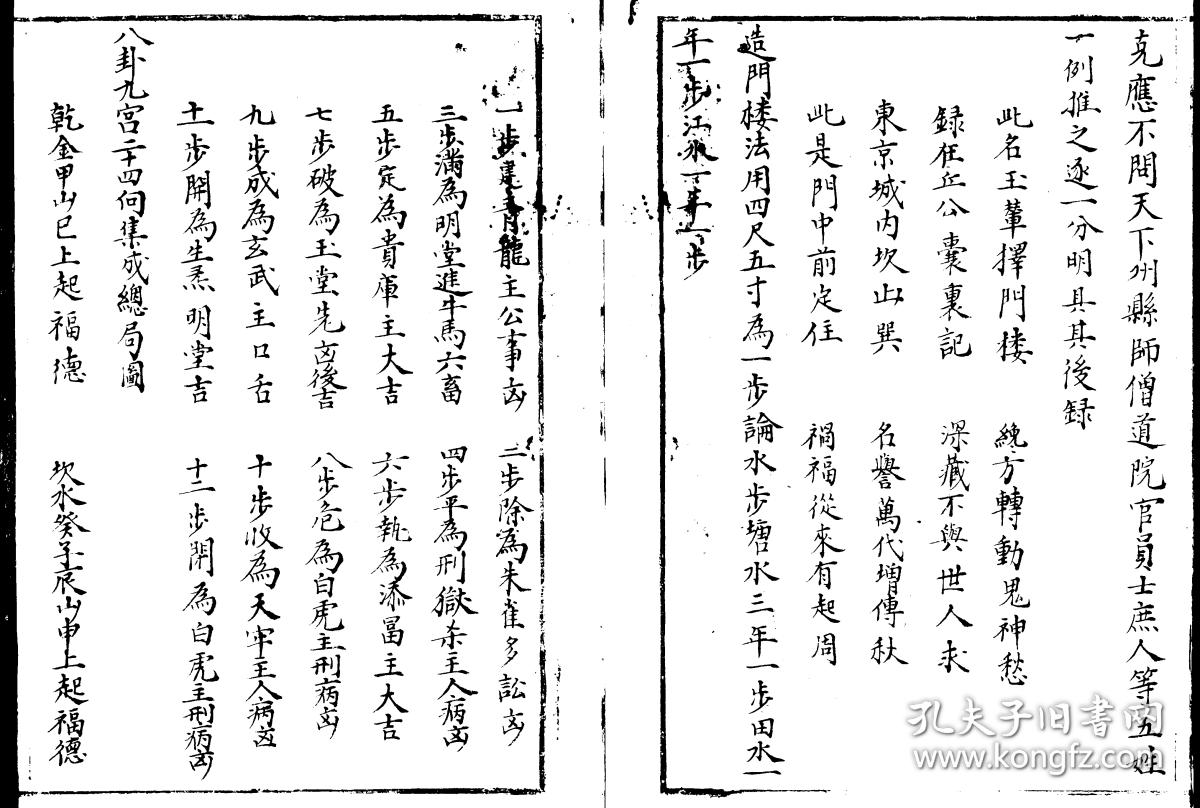 克應不問天下州縣師僧道院官員士庶人等五姓
一例推之逐一分明具其後録
此名玉輦擇門楼 纔方轉動鬼神愁
録在丘公囊裏記 深藏不與世人求
東京城内坎山巽 名譽萬代増傳秋
此是門中前定住 禍福從來有起周
造門楼法用四尺五寸為一步論水步塘水三年一步田水一
年一步江水一年一步
一步建青龍主公事凶 二步除為朱雀多訟凶
三步滿為明堂進牛馬六畜 四步平為刑獄杀主人病凶
五步定為貴庫主大吉 六步執為添冨主大吉
七步破為玉堂先凶後吉 八步危為白虎主刑病凶
九步成為玄武主口舌 十步收為天牢主人病凶
十一步開為生炁明堂吉 十二步閉為白虎主刑病凶
八卦九宫二十四向集成總局圖
乾金甲山巳上起福德 坎水癸子辰山申上起福德
孔夫子旧书网
www.kongfz.com